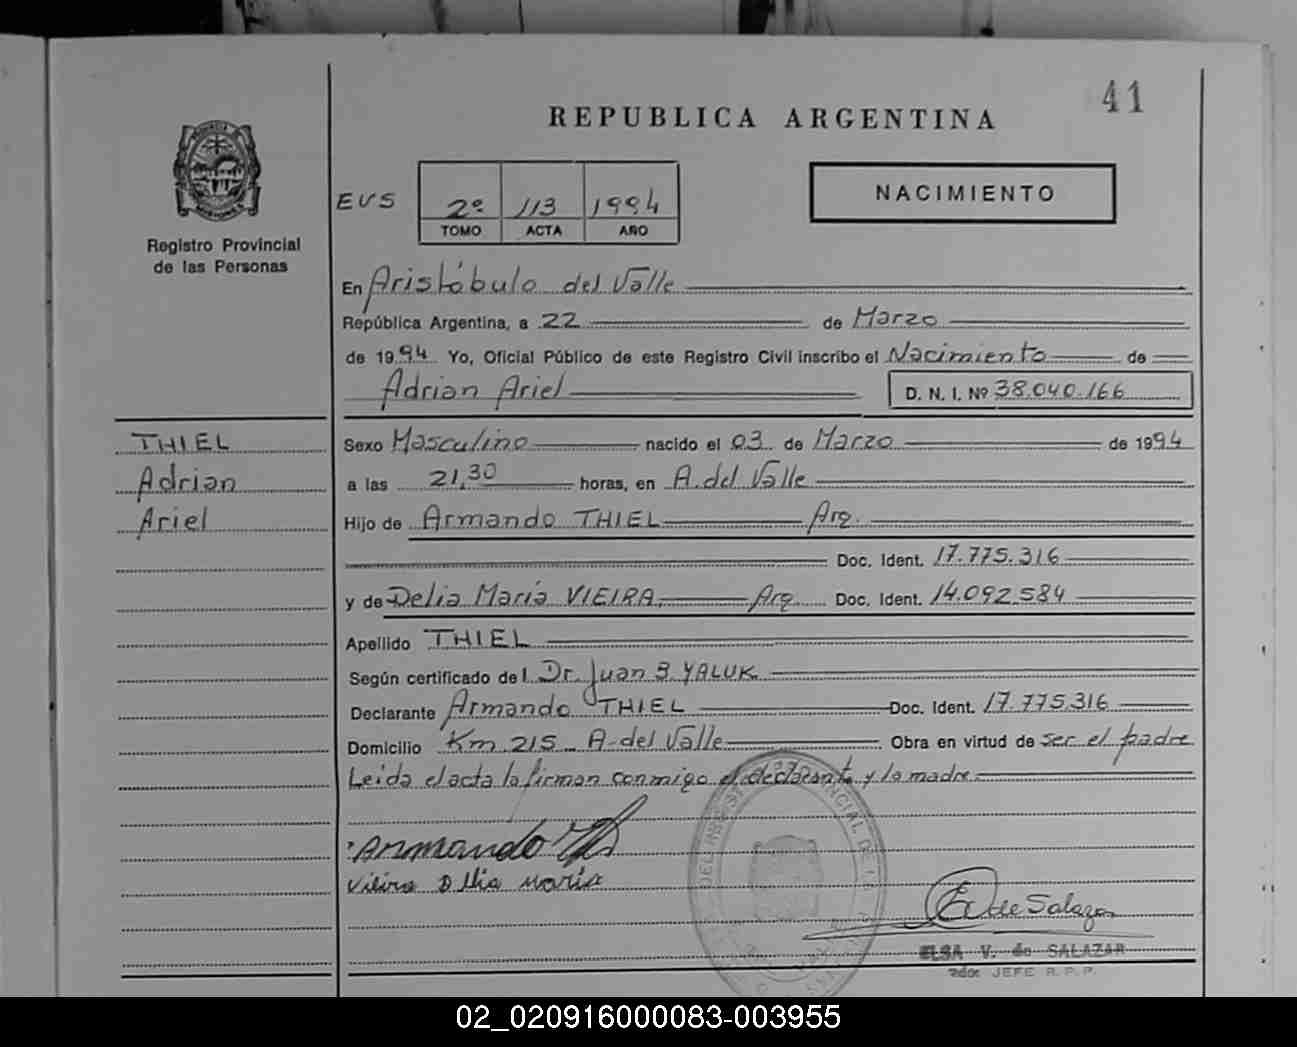 41
REPUBLICA ARGENTINA
PROVINCIA DE
MISIONES
Registro Provincial
de las Personas
NACIMIENTO
EVS
2º 113 1994
TOMO ACTA AÑO
En Aristóbulo del Valle
República Argentina, a 22 de Marzo
de 1994 Yo, Oficial Público de este Registro Civil inscribo el Nacimiento de
Adrian Ariel D. N. I. Nº 38.040.166
THIEL
Adrian
Ariel
Sexo Masculino nacido el 03 de Marzo de 1994
a las 21,30 horas, en A. del Valle
Hijo de Armando THIEL Arg.
Doc. Ident. 17.775.316
y de Delia María VIEIRA Arg. Doc. Ident. 14.092.584
Apellido THIEL
Según certificado del Dr. Juan B. YALUK
Declarante Armando THIEL Doc. Ident. 17.775.316
Domicilio Km 215 A. del Valle Obra en virtud de ser el padre
Leida el acta la firman conmigo el declarante y la madre.
Armando
Vieira Delia Maria
E V de Salazar
ELSA V. de SALAZAR
JEFE R.P.P.
02_020916000083-003955